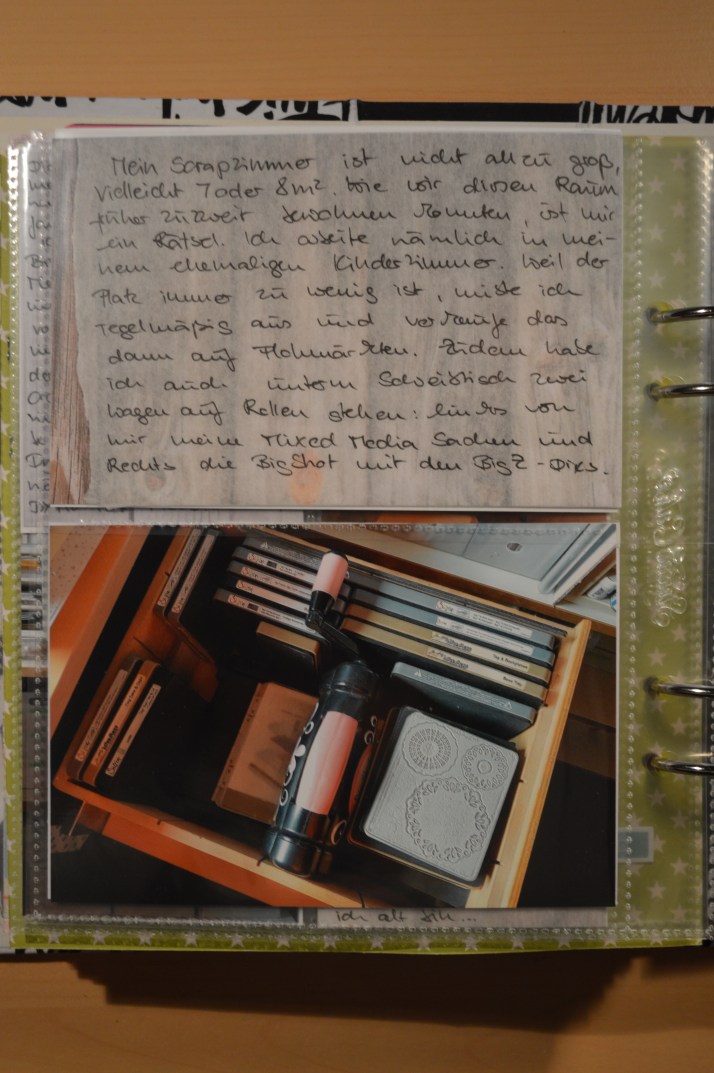 Mein Scrapzimmer ist nicht allzu groß,
vielleicht 7 oder 8 m². Wie wir diesen Raum
früher zu zweit bewohnen konnten, ist mir
ein Rätsel. Ich arbeite nämlich in mei-
nem ehemaligen Kinderzimmer. Weil der
Platz immer zu wenig ist, miste ich
regelmäßig aus und verkaufe das
dann auf Flohmärkten. Zudem habe
ich auch unterm Schreibtisch zwei
Wagen auf Rollen stehen: links von
mir meine Mixed Media Sachen und
Rechts die BigShot mit den BigZ-Dies.
Tag & Bookplates
ich alt bin...